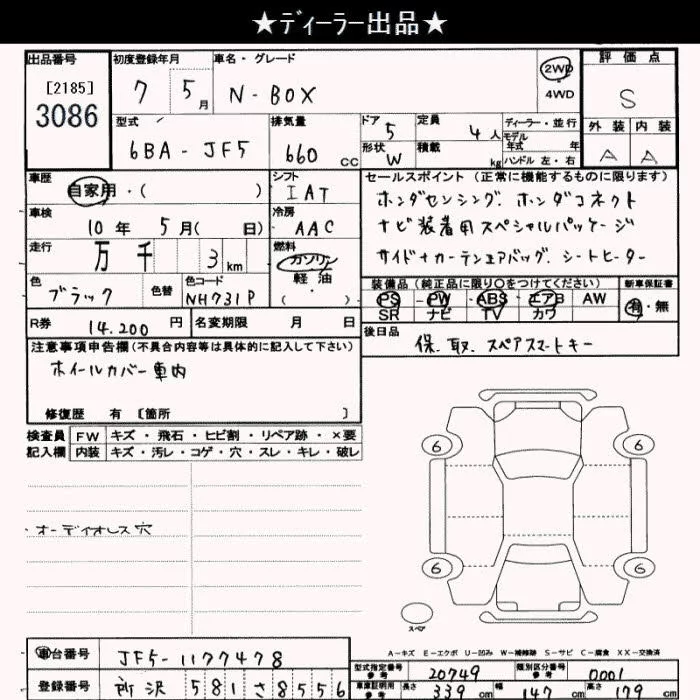 ★ディーラー出品★
出品番号 初度登録年月 車名・グレード 2WD 4WD 評価点
[2185] 3086 7 5月 N-BOX S
型式 排気量 ドア 5 定員 4人 ディーラー・並行 外装 内装
6BA-JF5 660CC 形状 W 積載 kg モデル年式 年 ハンドル 左・右 A A
車歴 シフト セールスポイント(正常に機能するものに限ります)
自家用・( ) IAT ホンダセンシング. ホンダコネクト
車検 冷房 ナビ装着用スペシャルパッケージ
10年 5月( 日) AAC サイド+カーテンエアバッグ. シートヒーター
走行 万 千 3km 燃料 ガソリン 軽油 ・( )
色 色替 色コード 装備品(純正品に限り○をつけてください) 新車保証書
ブラック NH731P PS PW ABS エアB AW 有・無
SR ナビ TV カワ
R券 14.200円 名変期限 月 日 後日品
保. 取. スペアスマートキー
注意事項申告欄(不具合内容等は具体的に記入して下さい)
ホイールカバー車内
修復歴 有 [箇所 ]
検査員 FW キズ・飛石・ヒビ割・リペア跡・×要
記入欄 内装 キズ・汚レ・コゲ・穴・スレ・キレ・破レ
6 6
・オーディオレス穴
6 6
スペア
A-キズ E-エクボ U-凹み W-補修跡 S-サビ C-腐食 XX-交換済
車台番号 JF5-1177478
型式指定番号 参考 20749 類別区分番号 参考 0001
登録番号 所沢 581 さ 8556
車庫証明用 参考 長さ 339cm 幅 147cm 高さ 179cm